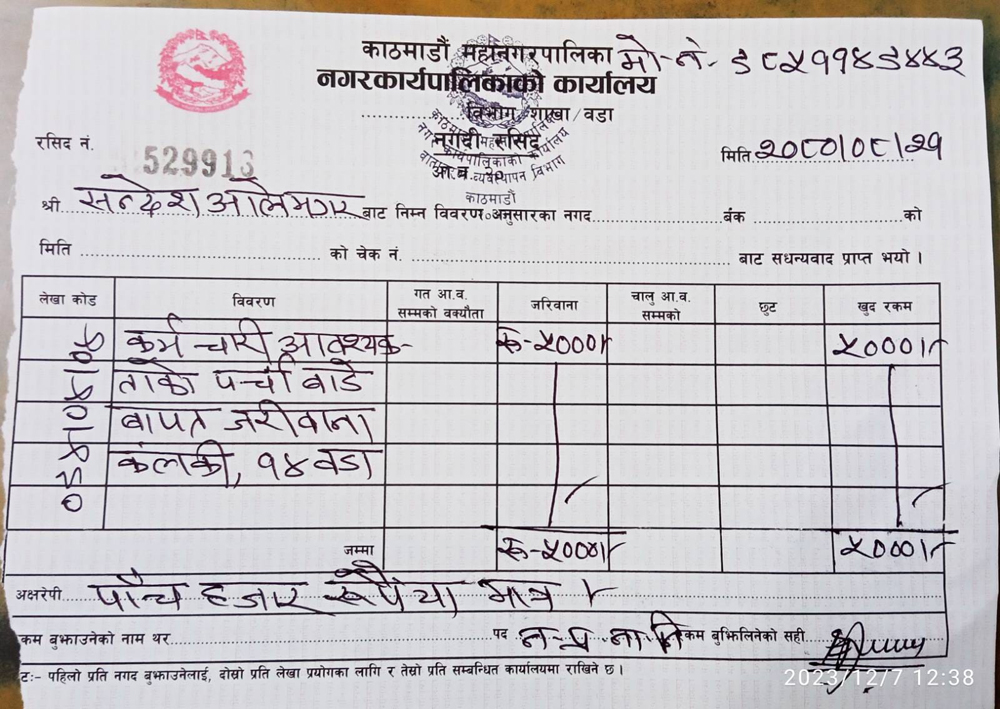 काठमाडौं महानगरपालिका मो-नं- ३८५११४३४४३
नगरकार्यपालिकाको कार्यालय
विभाग/शाखा/वडा
नगदी रसिद
आ.ब.
काठमाडौं
रसिद नं. 529913
मिति २०८०।०८।२१
श्री सन्देश आलेमगर बाट निम्न विवरण अनुसारका नगद बैंक को
मिति को चेक नं. बाट सधन्यवाद प्राप्त भयो ।
लेखा कोड विवरण गत आ.व. सम्मको वक्यौता जरिवाना चालु आ.व. सम्मको छुट खुद रकम
कर्मचारी आवश्यक- रु-५०००।- ५०००।-
ताको पर्चा बाडे
बापत जरीवाना
कलंकी, १४ वडा
जम्मा रु-५०००।- ५०००।-
अक्षरेपी पाँच हजार रूपैया मात्र ।-
कम बुझाउनेको नाम थर पद न-प्र ना नि कम बुझिलिनेको सही
टः- पहिलो प्रति नगद बुझाउनेलाई, दोस्रो प्रति लेखा प्रयोगका लागि र तेस्रो प्रति सम्बन्धित कार्यालयमा राखिने छ ।
2023/12/7 12:38